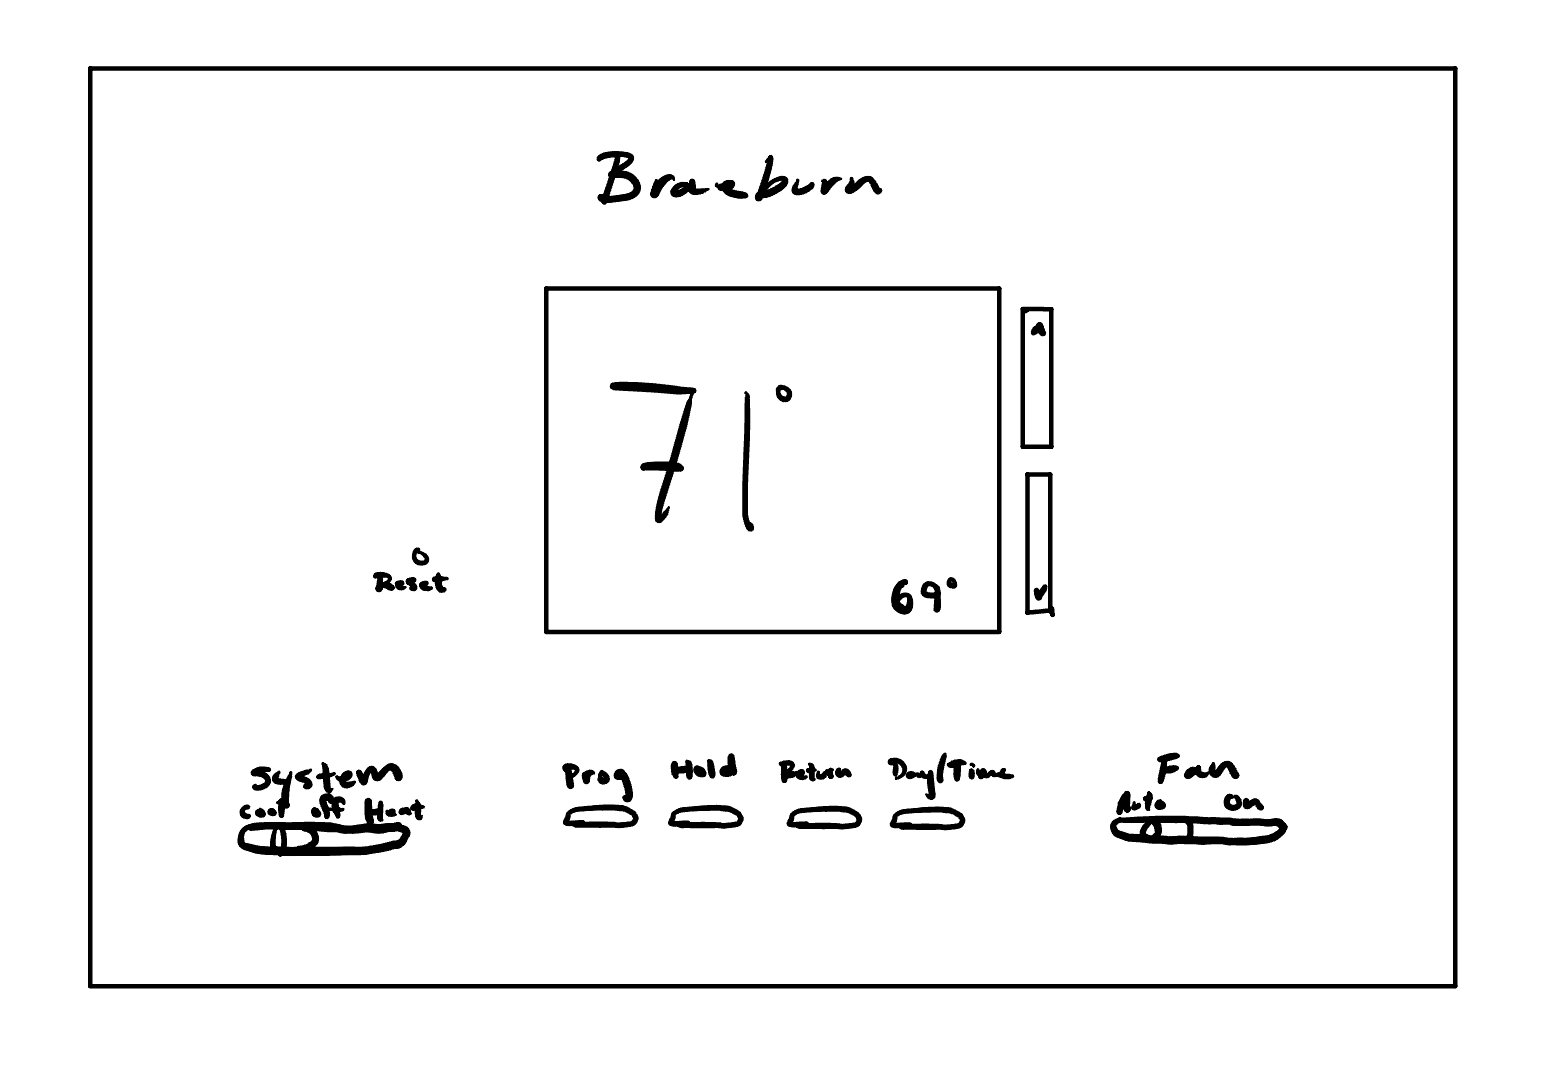 Braeburn
71°
69°
Reset
System
Cool off Heat
Prog Hold Return Day/Time
Fan
Auto On